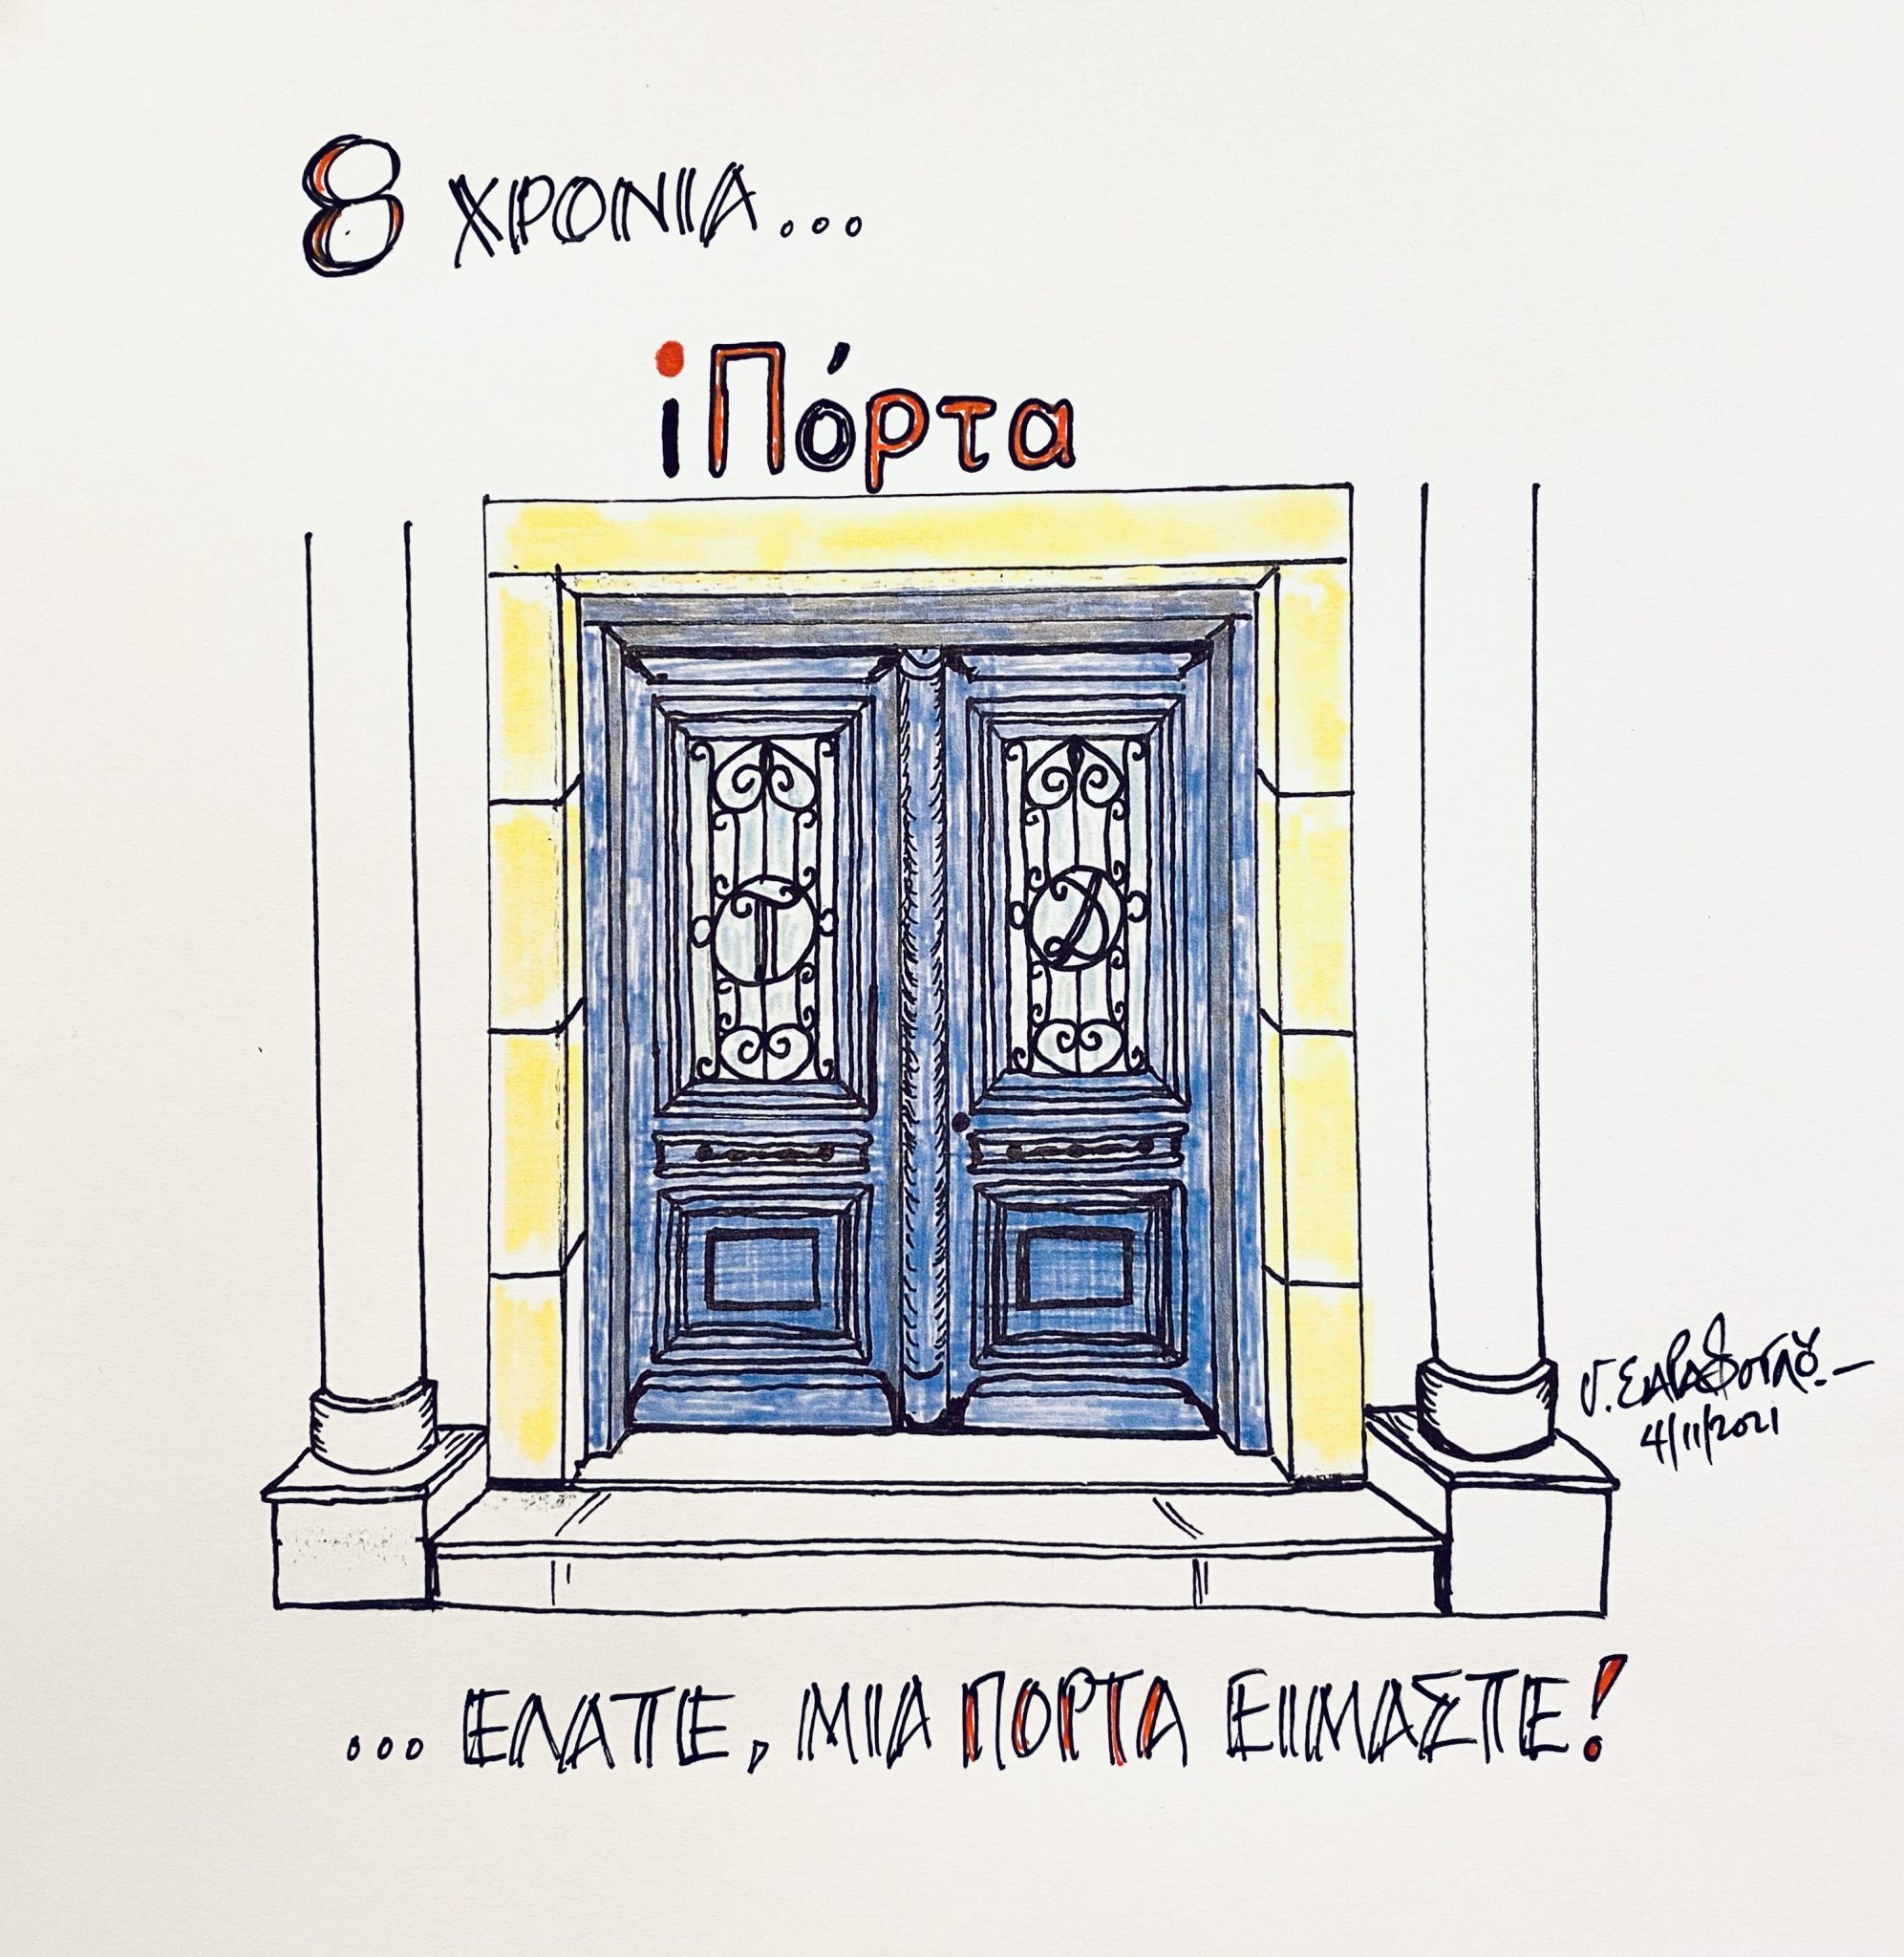 8 ΧΡΟΝΙΑ...
iΠόρτα
4/11/2021
... ΕΛΑΤΕ, ΜΙΑ ΠΟΡΤΑ ΕΙΜΑΣΤΕ!